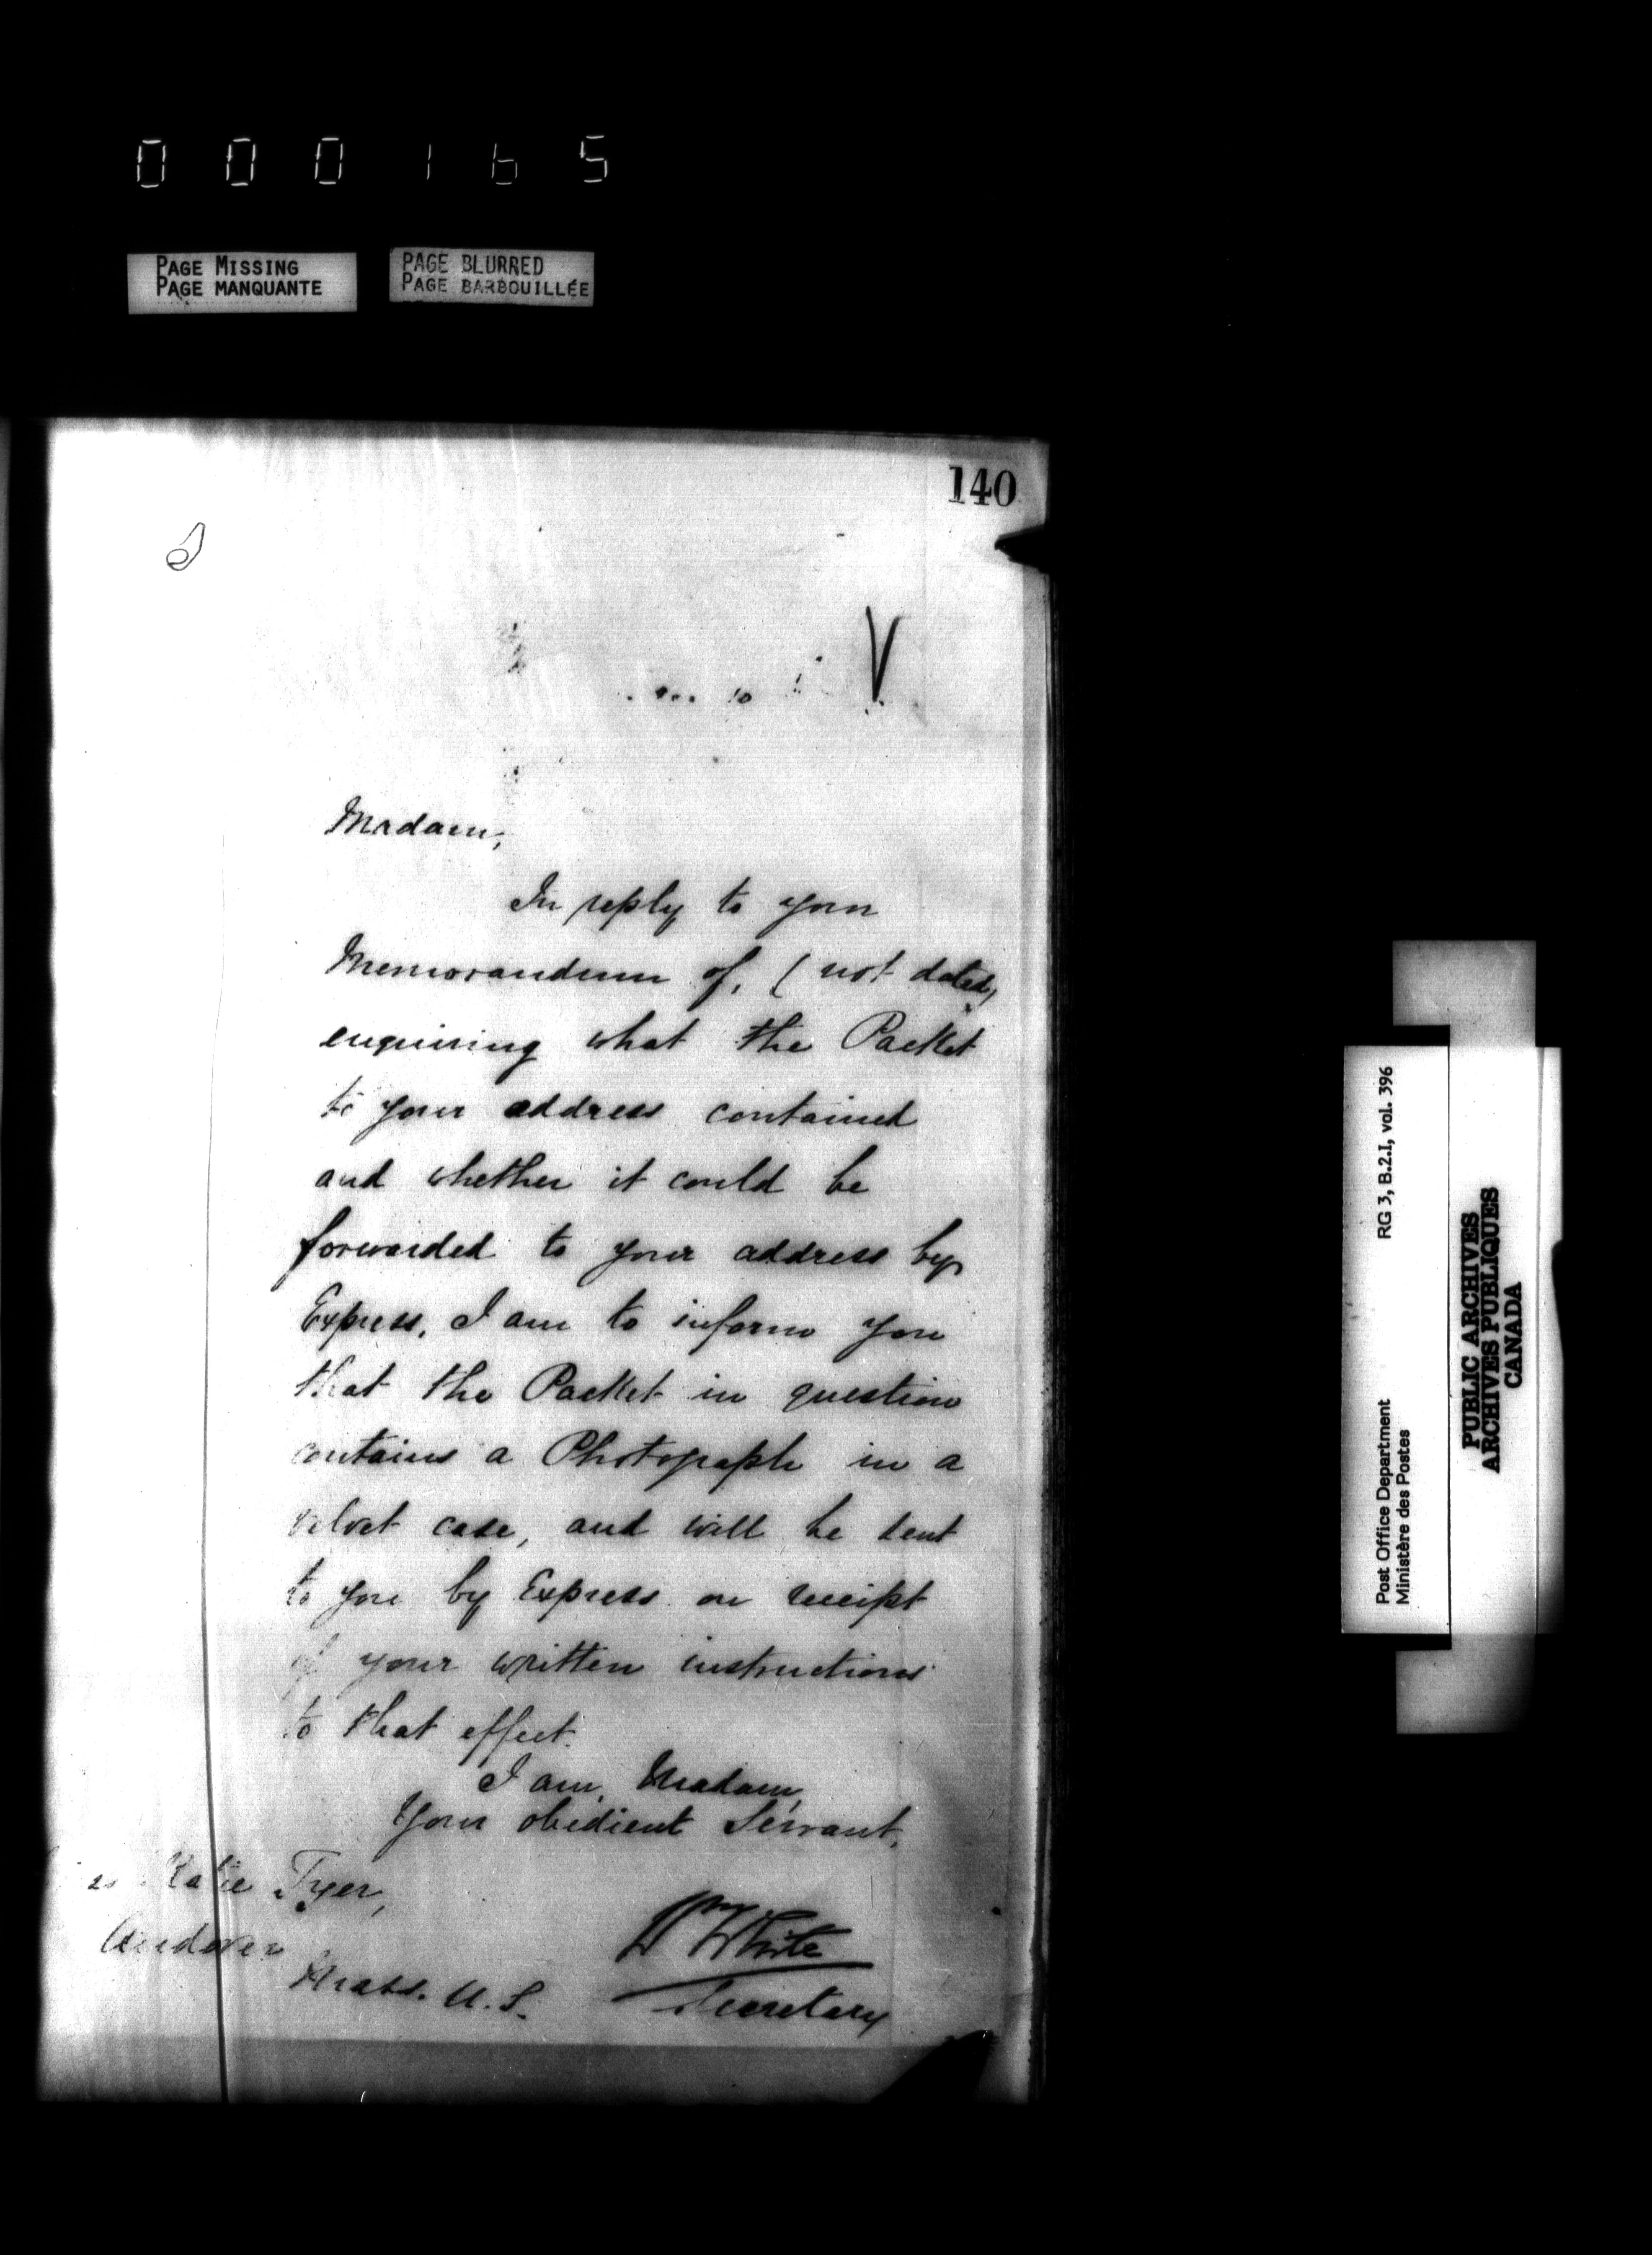 000165
PAGE MISSING
PAGE MANQUANTE
PAGE BLURRED
PAGE BARBOUILLÉE
140
Madam,
In reply to your
Memorandum of, (not dated)
enquiring what the Packet
to your address contained
and whether it could be
forwarded to your address by
Express, I am to inform you
that the Packet in question
contains a Photograph in a
velvet case, and will be sent
to you by Express on receipt
of your written instructions
to that effect.
I am, Madam,
Your obedient Servant,
Katie Tyer,
Andover
Mass. U.S.
Wm White
Secretary
Post Office Department RG 3, B.2.I, vol. 396
Ministère des Postes
PUBLIC ARCHIVES
ARCHIVES PUBLIQUES
CANADA